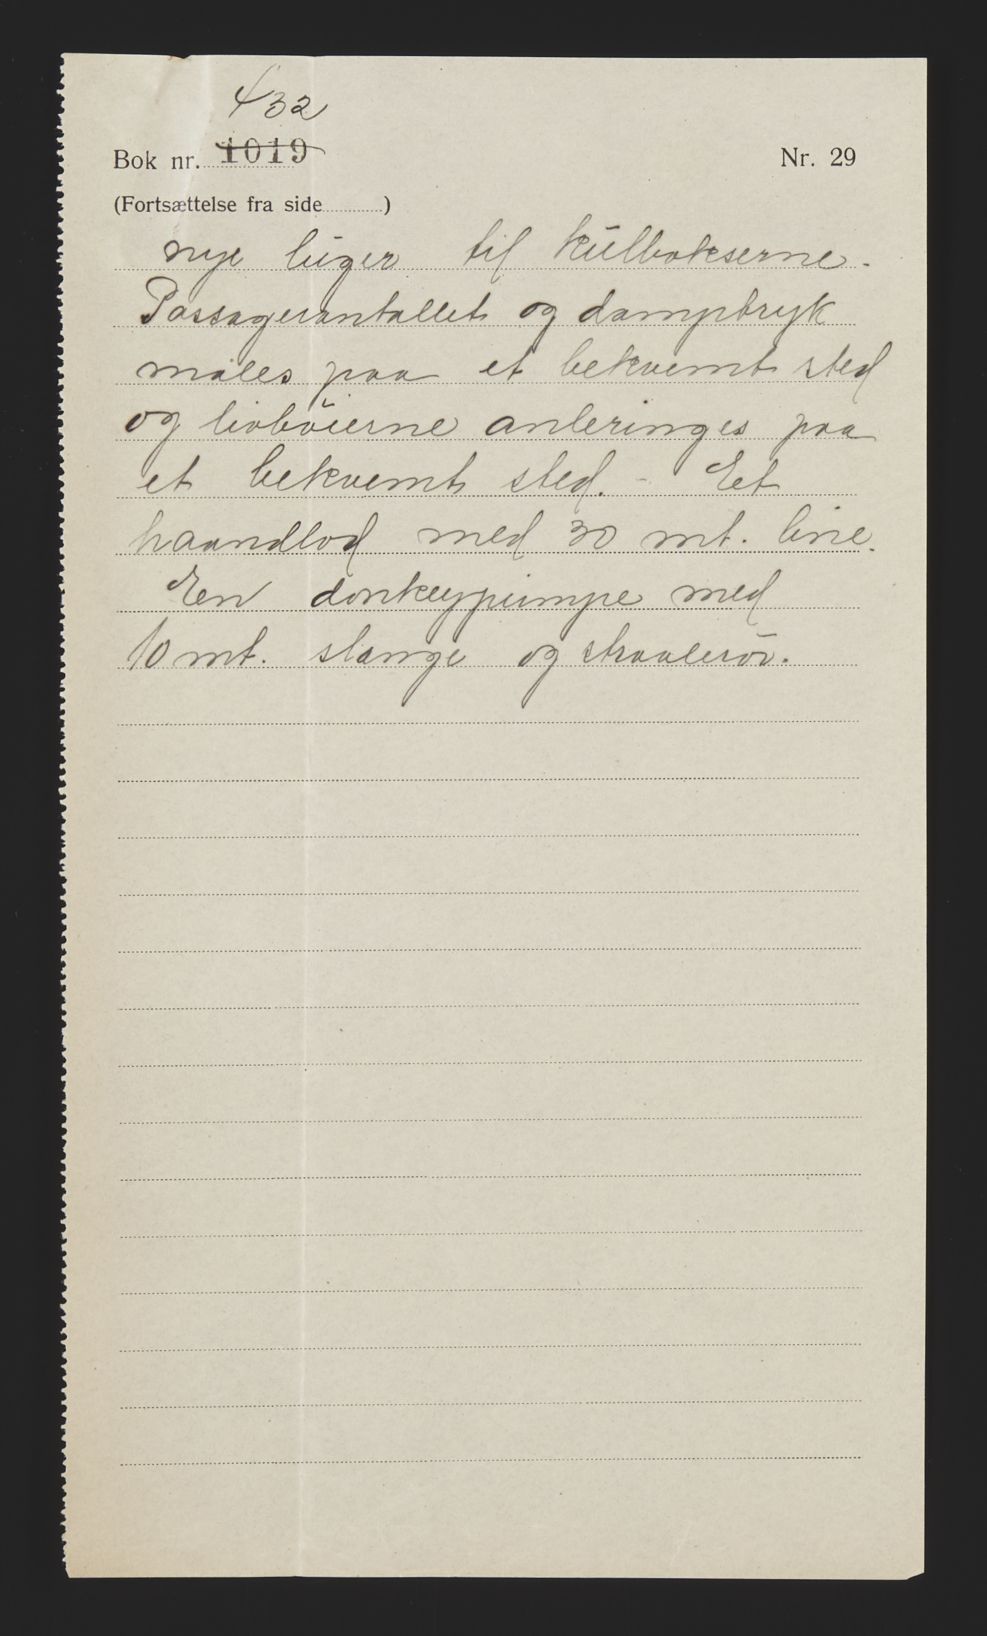 432
Bok nr. 1019
Nr. 29
(Fortsættelse fra side ............)
nye luger til kulbokserne.
Passagerantallet og damptryk
males paa et bekvemt sted
og livböierne anbringes paa
et bekvemt sted. - Et
haandlod med 30 mt. line.
En donkeypumpe med
10 mt. slange og straalerör.